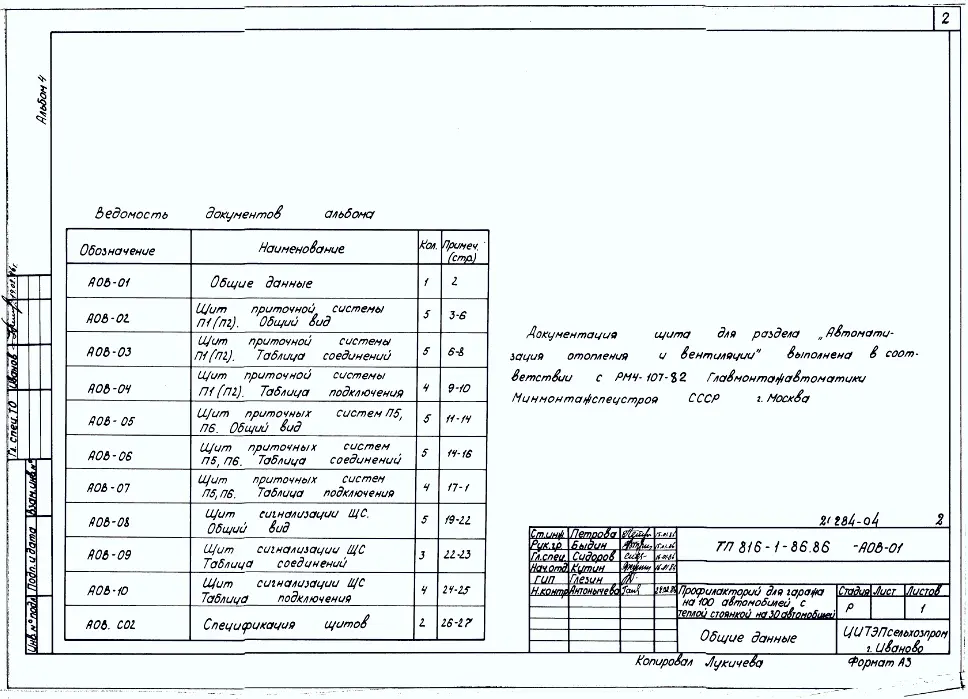 2
Альбом 4
Ведомость документов альбома
Обозначение Наименование Кол. Примеч. (стр.)
АОВ-01 Общие данные 1 2
АОВ-02 Щит приточной системы
П1(П2). Общий вид 5 3-6
АОВ-03 Щит приточной системы
П1(П2). Таблица соединений 5 6-8
АОВ-04 Щит приточной системы
П1(П2). Таблица подключения 4 9-10
АОВ-05 Щит приточных систем П5,
П6. Общий вид 5 11-14
АОВ-06 Щит приточных систем
П5, П6. Таблица соединений 5 14-16
АОВ-07 Щит приточных систем
П5, П6. Таблица подключения 4 17-1
АОВ-08 Щит сигнализации ЩС.
Общий вид 5 19-22
АОВ-09 Щит сигнализации ЩС
Таблица соединений 3 22-23
АОВ-10 Щит сигнализации ЩС
Таблица подключения 4 24-25
АОВ. СО2 Спецификация щитов 2 26-27
Документация щита для раздела „Автомати-
зация отопления и вентиляции" выполнена в соот-
ветствии с РМ4-107-82 Главмонтажавтоматики
Минмонтажспецстроя СССР г. Москва
21284-04 2
Ст.инж Петрова
Рук.гр. Быдин
Гл.спец Сидоров
Нач.отд. Кутин
ГИП Глезин
Н.контр Антонычева
ТП 816-1-86.86 -АОВ-01
Профилакторий для гаража
на 100 автомобилей с
теплой стоянкой на 30 автомобилей
Стадия Лист Листов
Р 1
Общие данные
ЦИТЭПсельхозпром
г. Иваново
Копировал Лукичева Формат А3
Гл. спец. ТО Иванов
Взам.инв.№
Подп. и дата
Инв.№ подл.